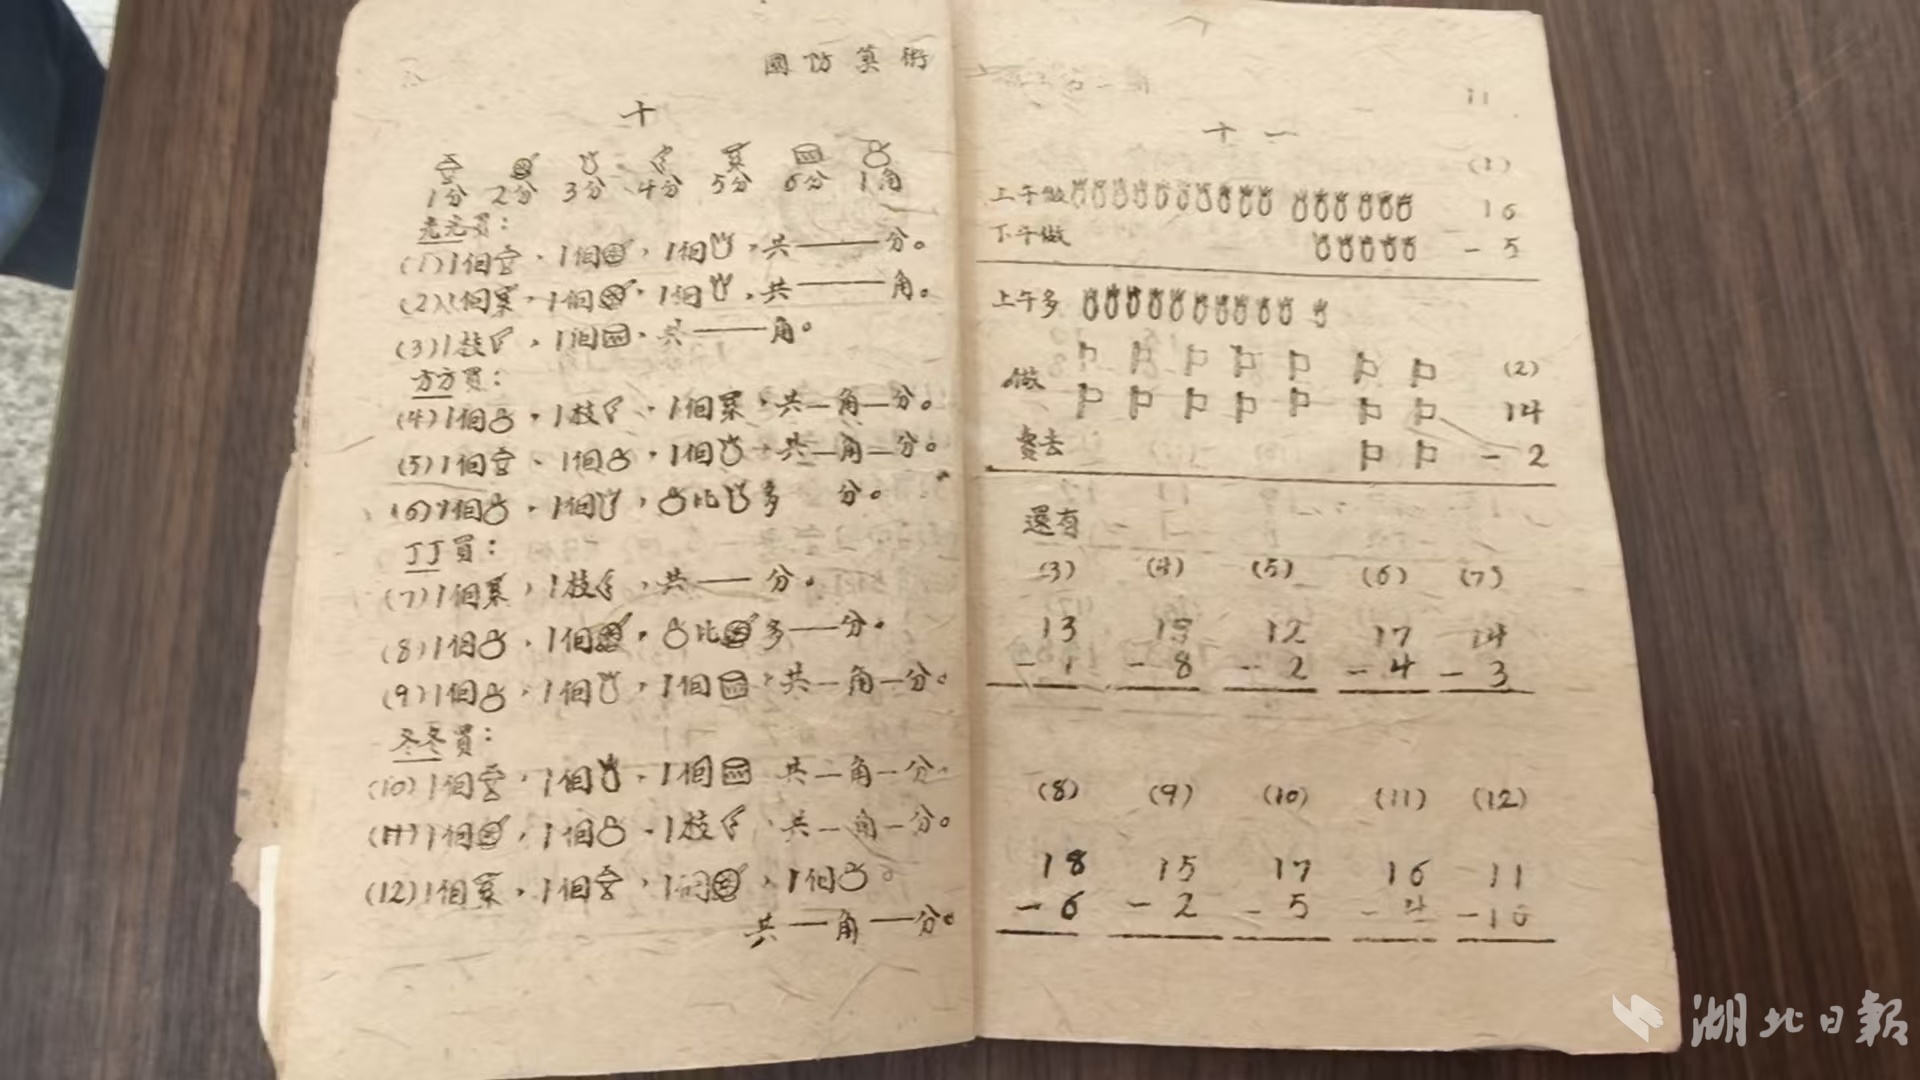 國防算術
十
1分 2分 3分 4分 5分 6分 1角
元元買：
(1)1個，1個，1個，共——分。
(2)1個，1個，1個，共——角。
(3)1枝，1個，共——角。
方方買：
(4)1個，1枝，1個，共—角—分。
(5)1個、1個，1個，共—角—分。
(6)1個，1個，比多 分。
丁丁買：
(7)1個，1枝，共——分。
(8)1個，1個，比多——分。
(9)1個，1個，1個，共—角—分。
冬冬買：
(10)1個，1個，1個 共—角—分。
(11)1個，1個、1枝，共—角—分。
(12)1個，1個，1個，1個。
共—角—分。
11
十一
(1)
上午做 16
下午做 - 5
上午多
(2)
做 14
賣去 - 2
還有
(3) (4) (5) (6) (7)
13 12 17 14
- 1 - 8 - 2 - 4 - 3
(8) (9) (10) (11) (12)
18 15 17 16 11
- 6 - 2 - 5 - 4 - 10
湖北日報